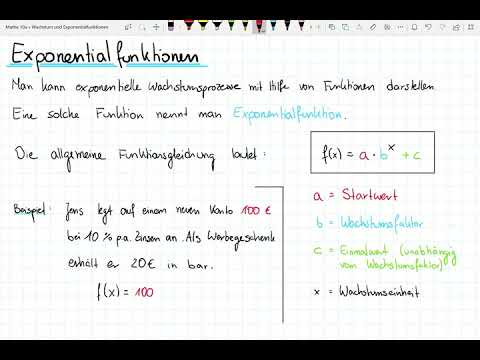 Mathe 10a • Wachstum und Exponentialfunktionen
Exponentialfunktionen
Man kann exponentielle Wachstumsprozesse mit Hilfe von Funktionen darstellen
Eine solche Funktion nennt man Exponentialfunktion.
Die allgemeine Funktionsgleichung lautet:
f(x) = a · b^x + c
a = Startwert
b = Wachstumsfaktor
c = Einmalwert (unabhängig
vom Wachstumsfaktor)
x = Wachstumseinheit
Beispiel: Jens legt auf einem neuen Konto 100 €
bei 10 % p.a. Zinsen an. Als Werbegeschenk
erhält er 20 € in bar.
f(x) = 100